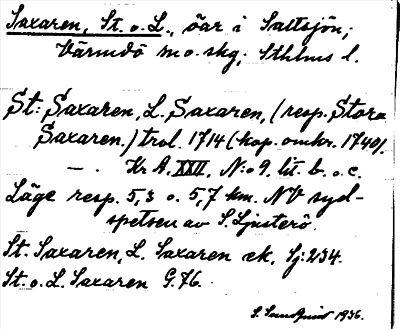 Saxaren, St. o. L., öar i Saltsjön;
Värmdö m o skg; Sthlms l.
St: Saxaren, L. Saxaren, (resp. Stora
Saxaren.) trol. 1714 (kop. omkr. 1740).
— . Kr A. XXII, N:o 9. lit. b. o. c.
Läge resp. 5,3 o. 5,7 km. NV syd-
spetsen av S. Ljusterö.
St. Saxaren, L. Saxaren ek. Sj: 234.
St. o. L. Saxaren G. 76.
1936.